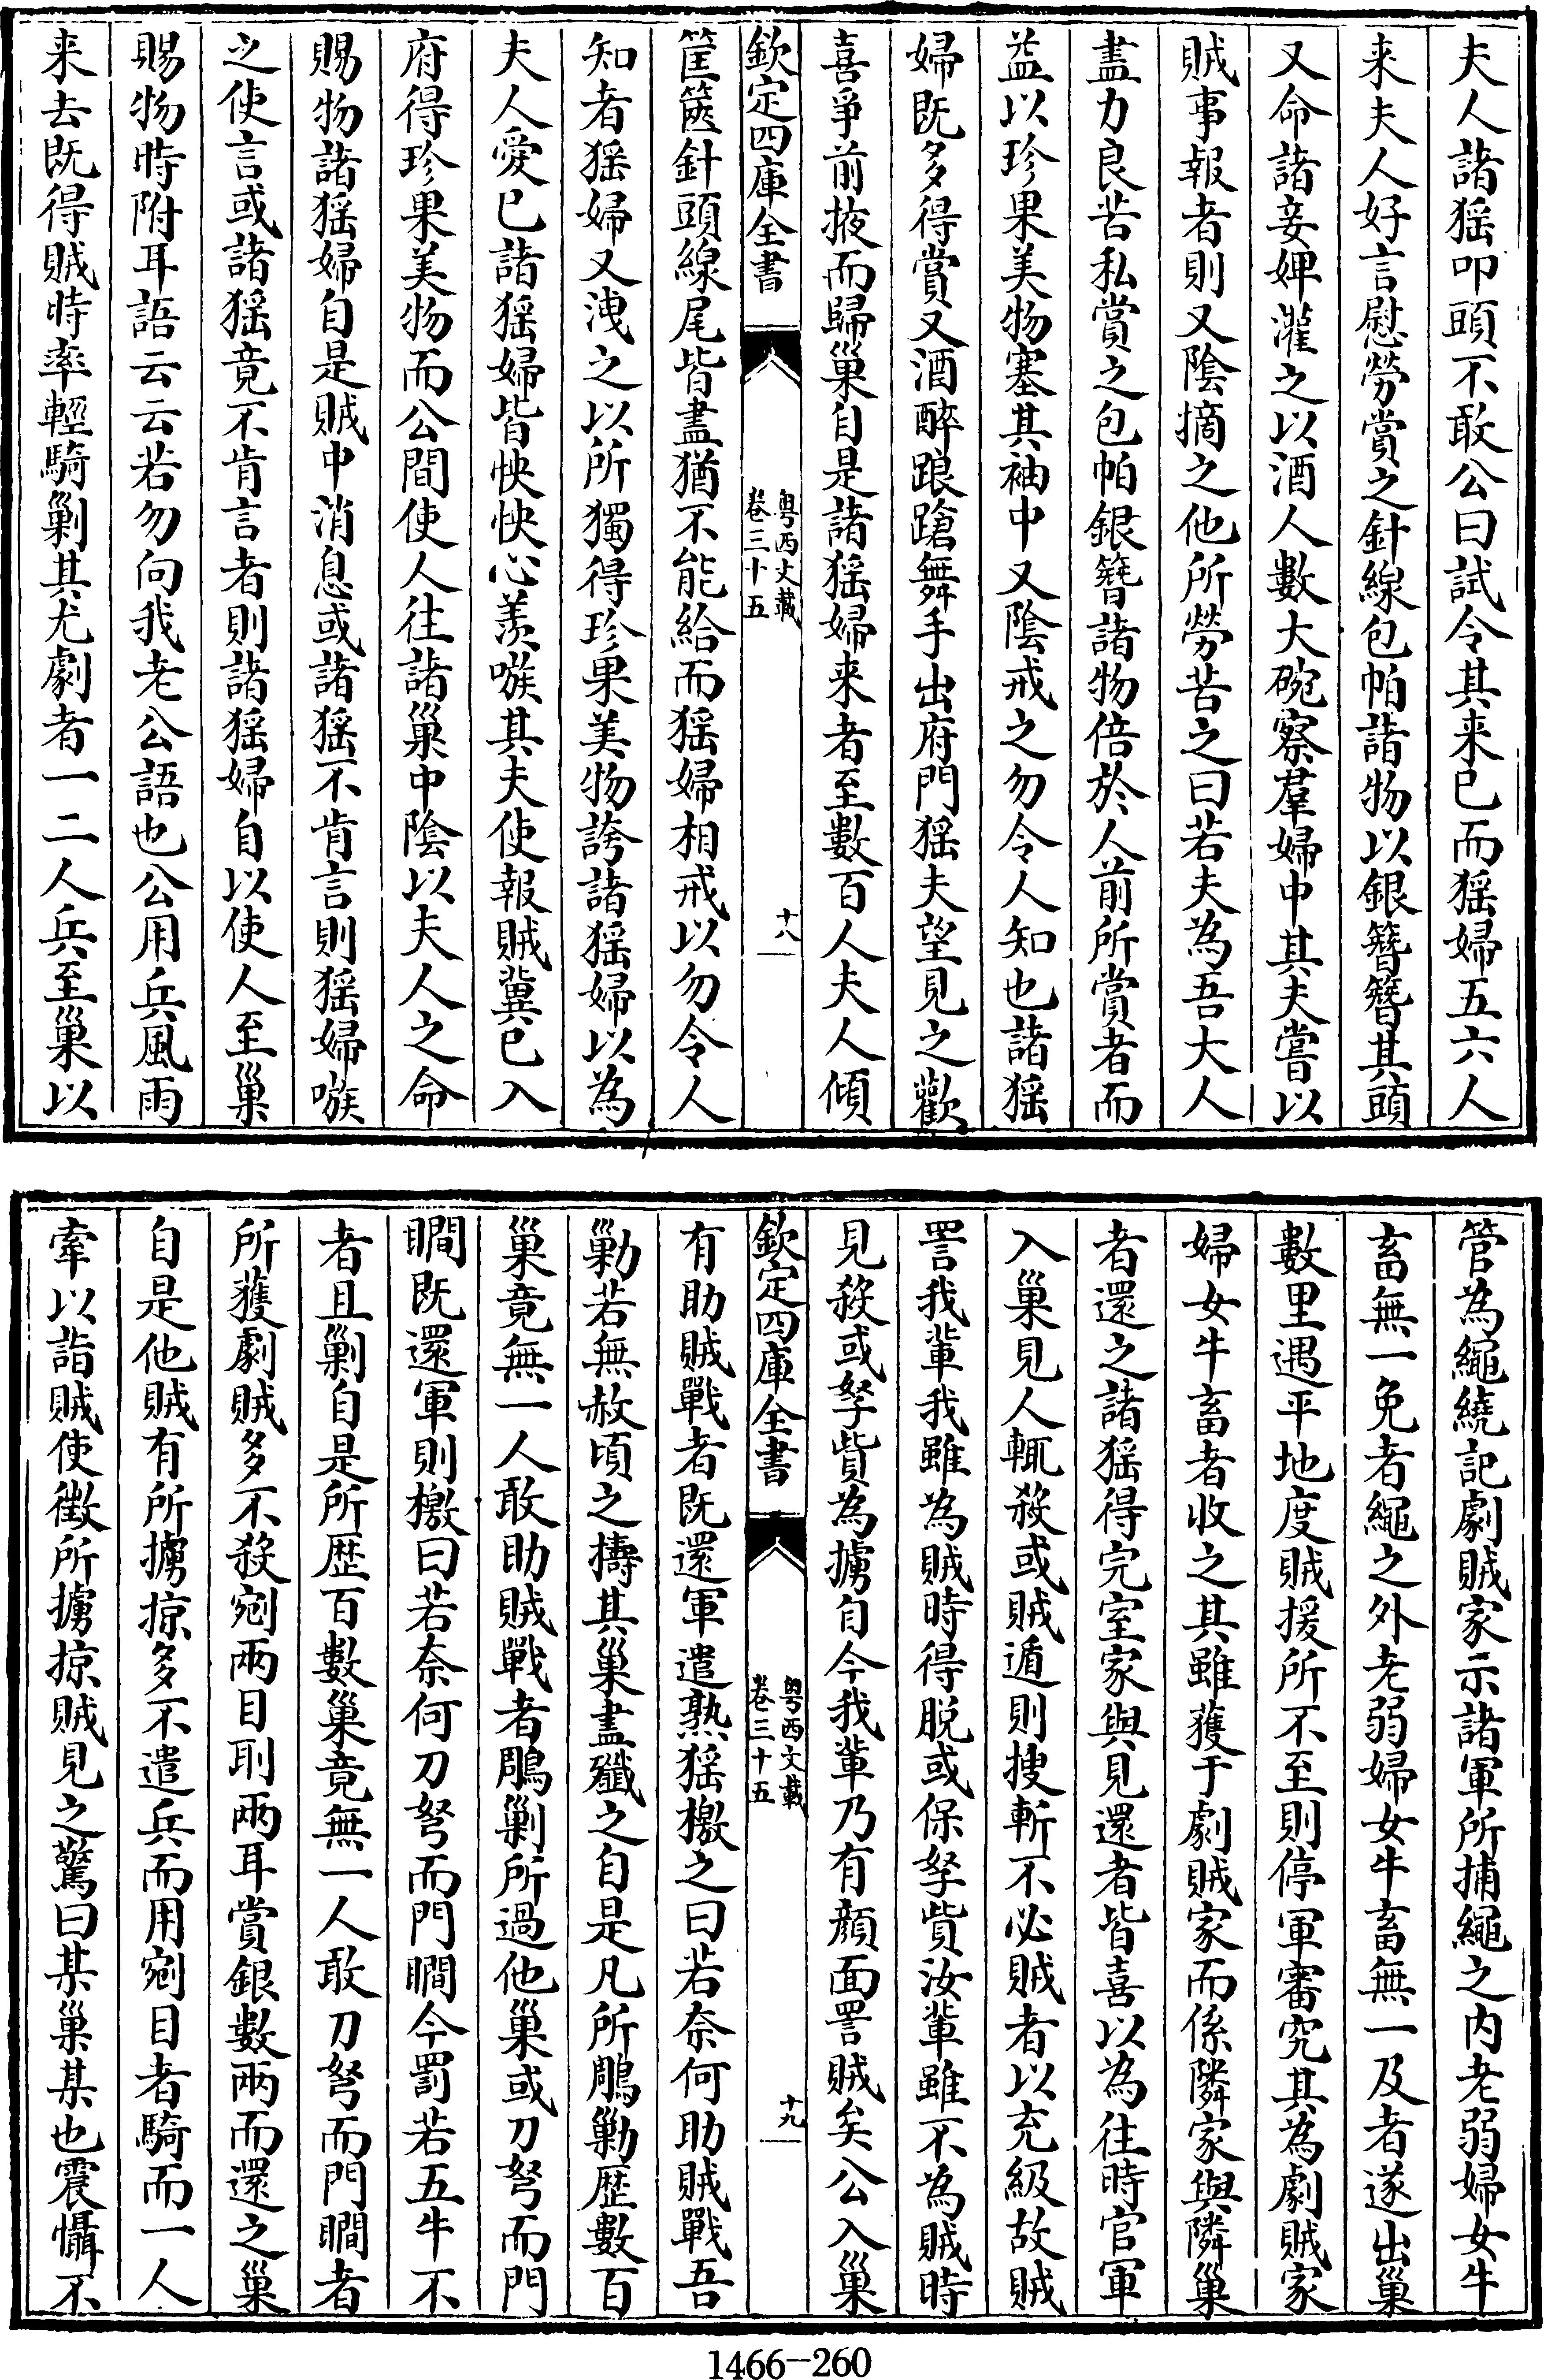 夫人諸猺叩頭不敢公曰試令其来已而猺婦五六人
来夫人好言慰勞賞之針線包帕諸物以銀簪簪其頭
又命諸妾婢灌之以酒人數大碗察羣婦中其夫嘗以
賊事報者則又陰摘之他所勞苦之曰若夫為吾大人
盡力良苦私賞之包帕銀簪諸物倍於人前所賞者而
益以珍果美物塞其袖中又陰戒之勿令人知也諸猺
婦既多得賞又酒醉踉蹌舞手出府門猺夫望見之歡
喜爭前掖而歸巢自是諸猺婦来者至數百人夫人傾
欽定四庫全書
粤西文載
卷三十五
十八
筐篋針頭線尾皆盡猶不能給而猺婦相戒以勿令人
知者猺婦又洩之以所獨得珍果美物誇諸猺婦以為
夫人愛已諸猺婦皆怏怏心羨嗾其夫使報賊冀已入
府得珍果美物而公間使人往諸巢中陰以夫人之命
賜物諸猺婦自是賊中消息或諸猺不肯言則猺婦嗾
之使言或諸猺竟不肯言者則諸猺婦自以使人至巢
賜物時附耳語云云若勿向我老公語也公用兵風雨
来去既得賊時率輕騎剿其尤劇者一二人兵至巢以
管為繩繞記劇賊家示諸軍所捕繩之内老弱婦女牛
畜無一免者繩之外老弱婦女牛畜無一及者遂出巢
數里遇平地度賊援所不至則停軍審究其為劇賊家
婦女牛畜者收之其雖獲于劇賊家而係隣家與隣巢
者還之諸猺得完室家與見還者皆喜以為往時官軍
入巢見人輒殺或賊遁則搜斬不必賊者以充級故賊
詈我輩我雖為賊時得脱或保孥貲汝輩雖不為賊時
見殺或孥貲為擄自今我輩乃有顏面詈賊矣公入巢
欽定四庫全書
粤西文載
卷三十五
十九
有助賊戰者既還軍遣熟猺檄之曰若奈何助賊戰吾
勦若無赦頃之擣其巢盡殲之自是凡所鵰勦歴數百
巢竟無一人敢助賊戰者鵰剿所過他巢或刀弩而門
瞷既還軍則檄曰若奈何刀弩而門瞷今罰若五牛不
者且剿自是所歴百數巢竟無一人敢刀弩而門瞷者
所獲劇賊多不殺剜兩目刵兩耳賞銀數兩而還之巢
自是他賊有所擄掠多不遣兵而用剜目者騎而一人
牽以詣賊使徵所擄掠賊見之驚曰某巢某也震懾不
1466-260